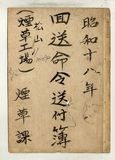 昭和十八年
回送命令送付簿
煙草課
(松山
煙草工場)